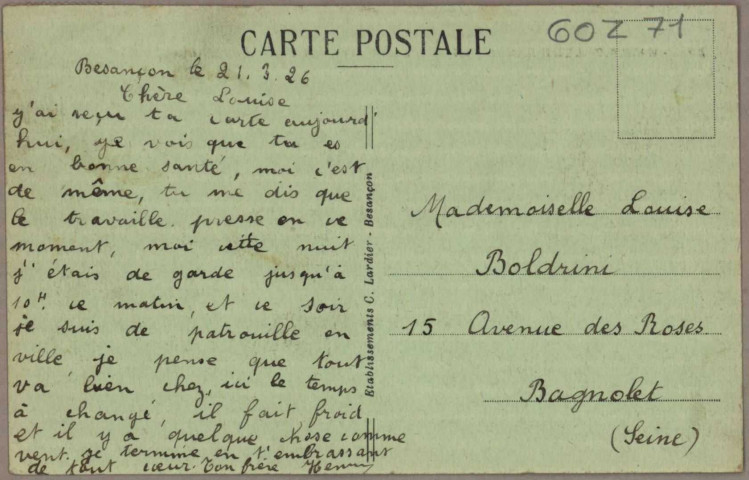 60Z 71
CARTE POSTALE
Besançon le 21.3.26
Chère Louise
y'ai reçu ta carte aujourd'
hui, ye vois que tu es
en bonne santé, moi c'est
de même, tu me dis que
le travaille presse en ce
moment, moi cette nuit
j'étais de garde jusqu'à
10H ce matin, et ce soir
je suis de patrouille en
ville je pense que tout
va bien chez, ici le temps
à changé, il fait froid
et il y a quelque chose comme
vent. je termine en t'embrassant
de tout cœur. Ton frère Henri
Etablissements C. Lardier - Besançon
Mademoiselle Louise
Boldrini
15 Avenue des Roses
Bagnolet
(Seine)